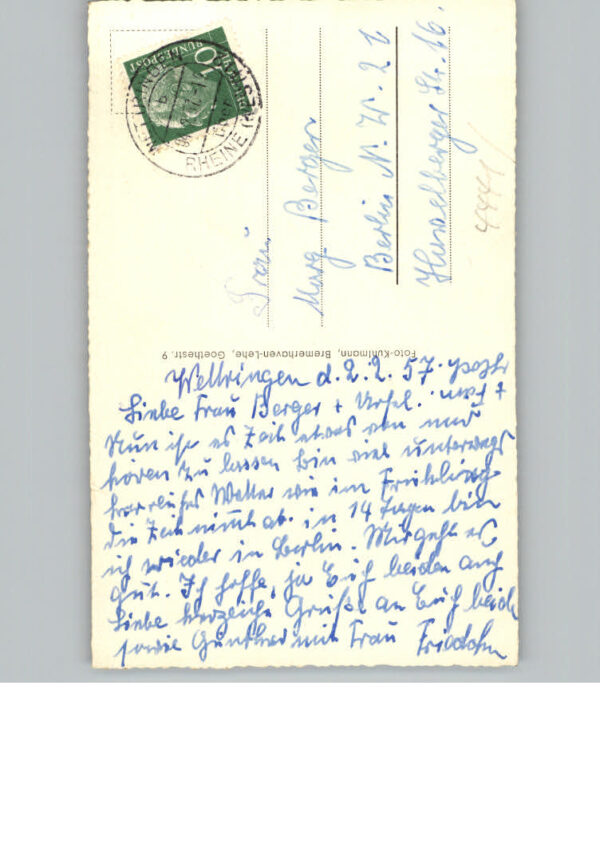 10
DEUTSCHE
BUNDESPOST
RHEINE
Frau
Marg Berger
Berlin N.W. 21
Str. 16.
4441
Foto-Kuhlmann, Bremerhaven-Lehe, Goethestr. 9
Wettringen d. 2.2.57.
Liebe Frau Berger + Ursel.
Nun ist es Zeit etwas von mir
hören zu lassen bin viel unterwegs
Wetter wie im Frühling
die Zeit nimmt ab. in 14 Tagen bin
ich wieder in Berlin. Mir geht es
gut. Ich hoffe, ja Euch beiden auch
Liebe herzliche Grüße an Euch beide
sowie Günther mit Frau